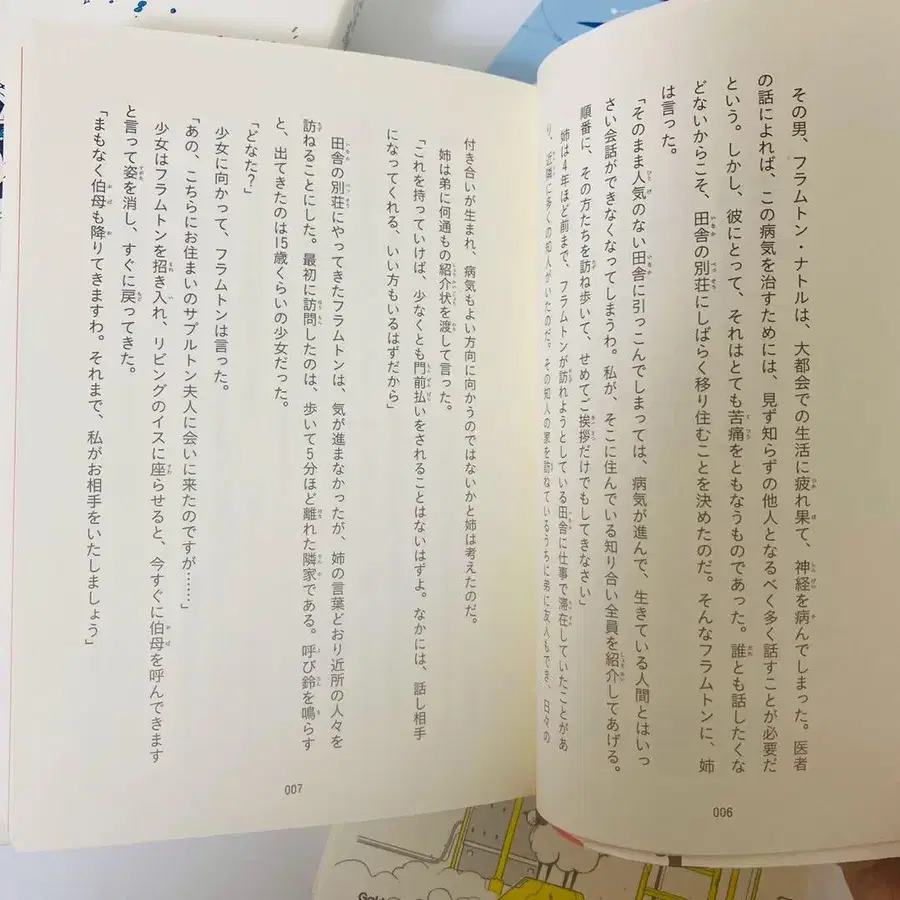 その男、フラムトン・ナトルは、大都会での生活に疲れ果て、神経を病んでしまった。医者
の話によれば、この病気を治すためには、見ず知らずの他人となるべく多く話すことが必要だ
という。しかし、彼にとって、それはとても苦痛をともなうものであった。誰とも話したくな
どないからこそ、田舎の別荘にしばらく移り住むことを決めたのだ。そんなフラムトンに、姉
は言った。
「そのまま人気のない田舎に引っこんでしまっては、病気が進んで、生きている人間とはいっ
さい会話ができなくなってしまうわ。私が、そこに住んでいる知り合い全員を紹介してあげる。
順番に、その方たちを訪ね歩いて、せめてご挨拶だけでもしてきなさい」
姉は4年ほど前まで、フラムトンが訪れようとしている田舎に仕事で滞在していたことがあ
り、近隣に多くの知人がいたのだ。その知人の家を訪ねているうちに弟に友人もでき、日々の
006
付き合いが生まれ、病気もよい方向に向かうのではないかと姉は考えたのだ。
姉は弟に何通もの紹介状を渡して言った。
「これを持っていけば、少なくとも門前払いをされることはないはずよ。なかには、話し相手
になってくれる、いい方もいるはずだから」
田舎の別荘にやってきたフラムトンは、気が進まなかったが、姉の言葉どおり近所の人々を
訪ねることにした。最初に訪問したのは、歩いて5分ほど離れた隣家である。呼び鈴を鳴らす
と、出てきたのは15歳くらいの少女だった。
「どなた?」
少女に向かって、フラムトンは言った。
「あの、こちらにお住まいのサプルトン夫人に会いに来たのですが……」
少女はフラムトンを招き入れ、リビングのイスに座らせると、今すぐに伯母を呼んできます
と言って姿を消し、すぐに戻ってきた。
「まもなく伯母も降りてきますわ。それまで、私がお相手をいたしましょう」
007